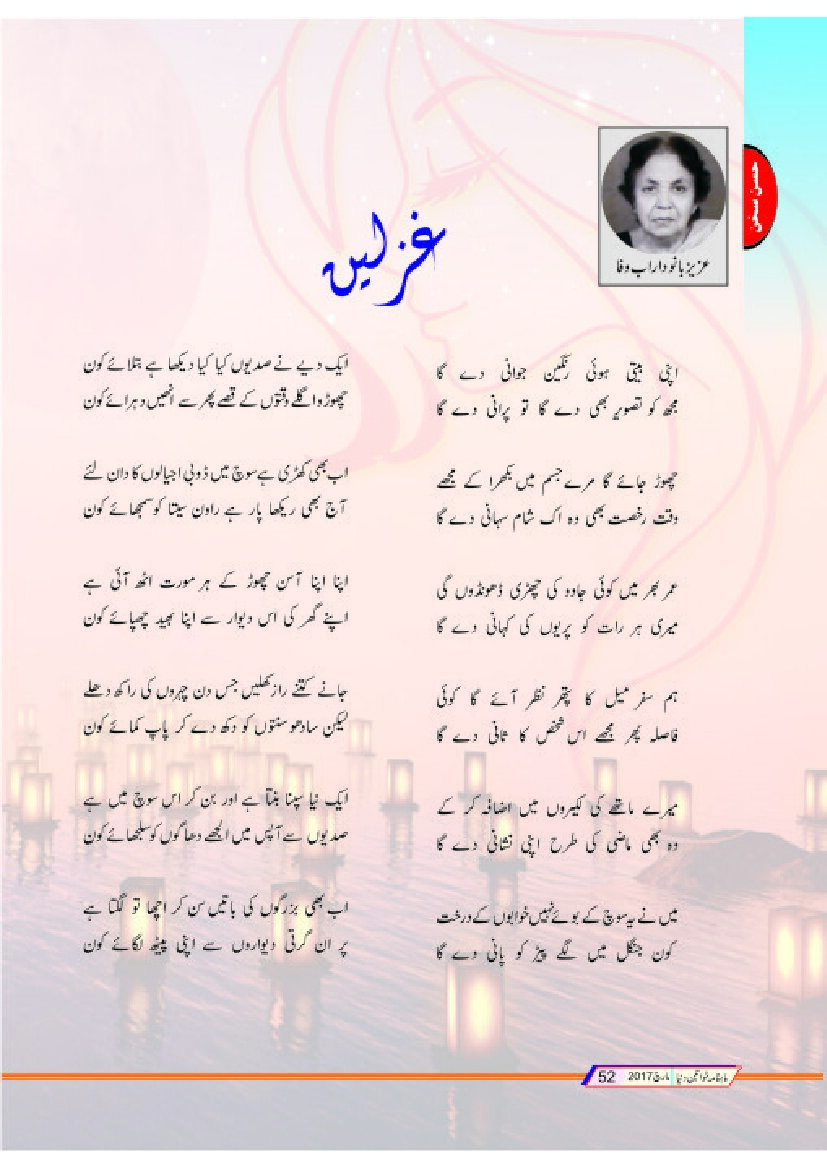 حسن سخن
عزیز بانو داراب وفا
غزلیں
اپنی بیتی ہوئی رنگین جوانی دے گا
مجھ کو تصویر بھی دے گا تو پرانی دے گا
چھوڑ جائے گا مرے جسم میں بکھرا کے مجھے
وقت رخصت بھی وہ اک شام سہانی دے گا
عمر بھر میں کوئی جادو کی چھڑی ڈھونڈوں گی
میری ہر رات کو پریوں کی کہانی دے گا
ہم سفر میل کا پتھر نظر آئے گا کوئی
فاصلہ پھر مجھے اس شخص کا ثانی دے گا
میرے ماتھے کی لکیروں میں اضافہ کر کے
وہ بھی ماضی کی طرح اپنی نشانی دے گا
میں نے یہ سوچ کے بوئے نہیں خوابوں کے درخت
کون جنگل میں لگے پیڑ کو پانی دے گا
ایک دیے نے صدیوں کیا کیا دیکھا ہے بتلائے کون
چھوڑو اگلے وقتوں کے قصے پھر سے انھیں دہرائے کون
اب بھی کھڑی ہے سوچ میں ڈوبی اجیالوں کا دان لئے
آج بھی ریکھا پار ہے راون سیتا کو سمجھائے کون
اپنا اپنا آسن چھوڑ کے ہر مورت اٹھ آئی ہے
اپنے گھر کی اس دیوار سے اپنا بھید چھپائے کون
جانے کتنے راز کھلیں جس دن چہروں کی راکھ دھلے
لیکن سادھو سنتوں کو دکھ دے کر پاپ کمائے کون
ایک نیا سپنا بنتا ہے اور بن کر اس سوچ میں ہے
صدیوں سے آپس میں الجھے دھاگوں کو سلجھائے کون
اب بھی بزرگوں کی باتیں سن کر اچھا تو لگتا ہے
پر ان گرتی دیواروں سے اپنی پیٹھ لگائے کون
ماہنامہ خواتین دنیا مارچ 2017 52